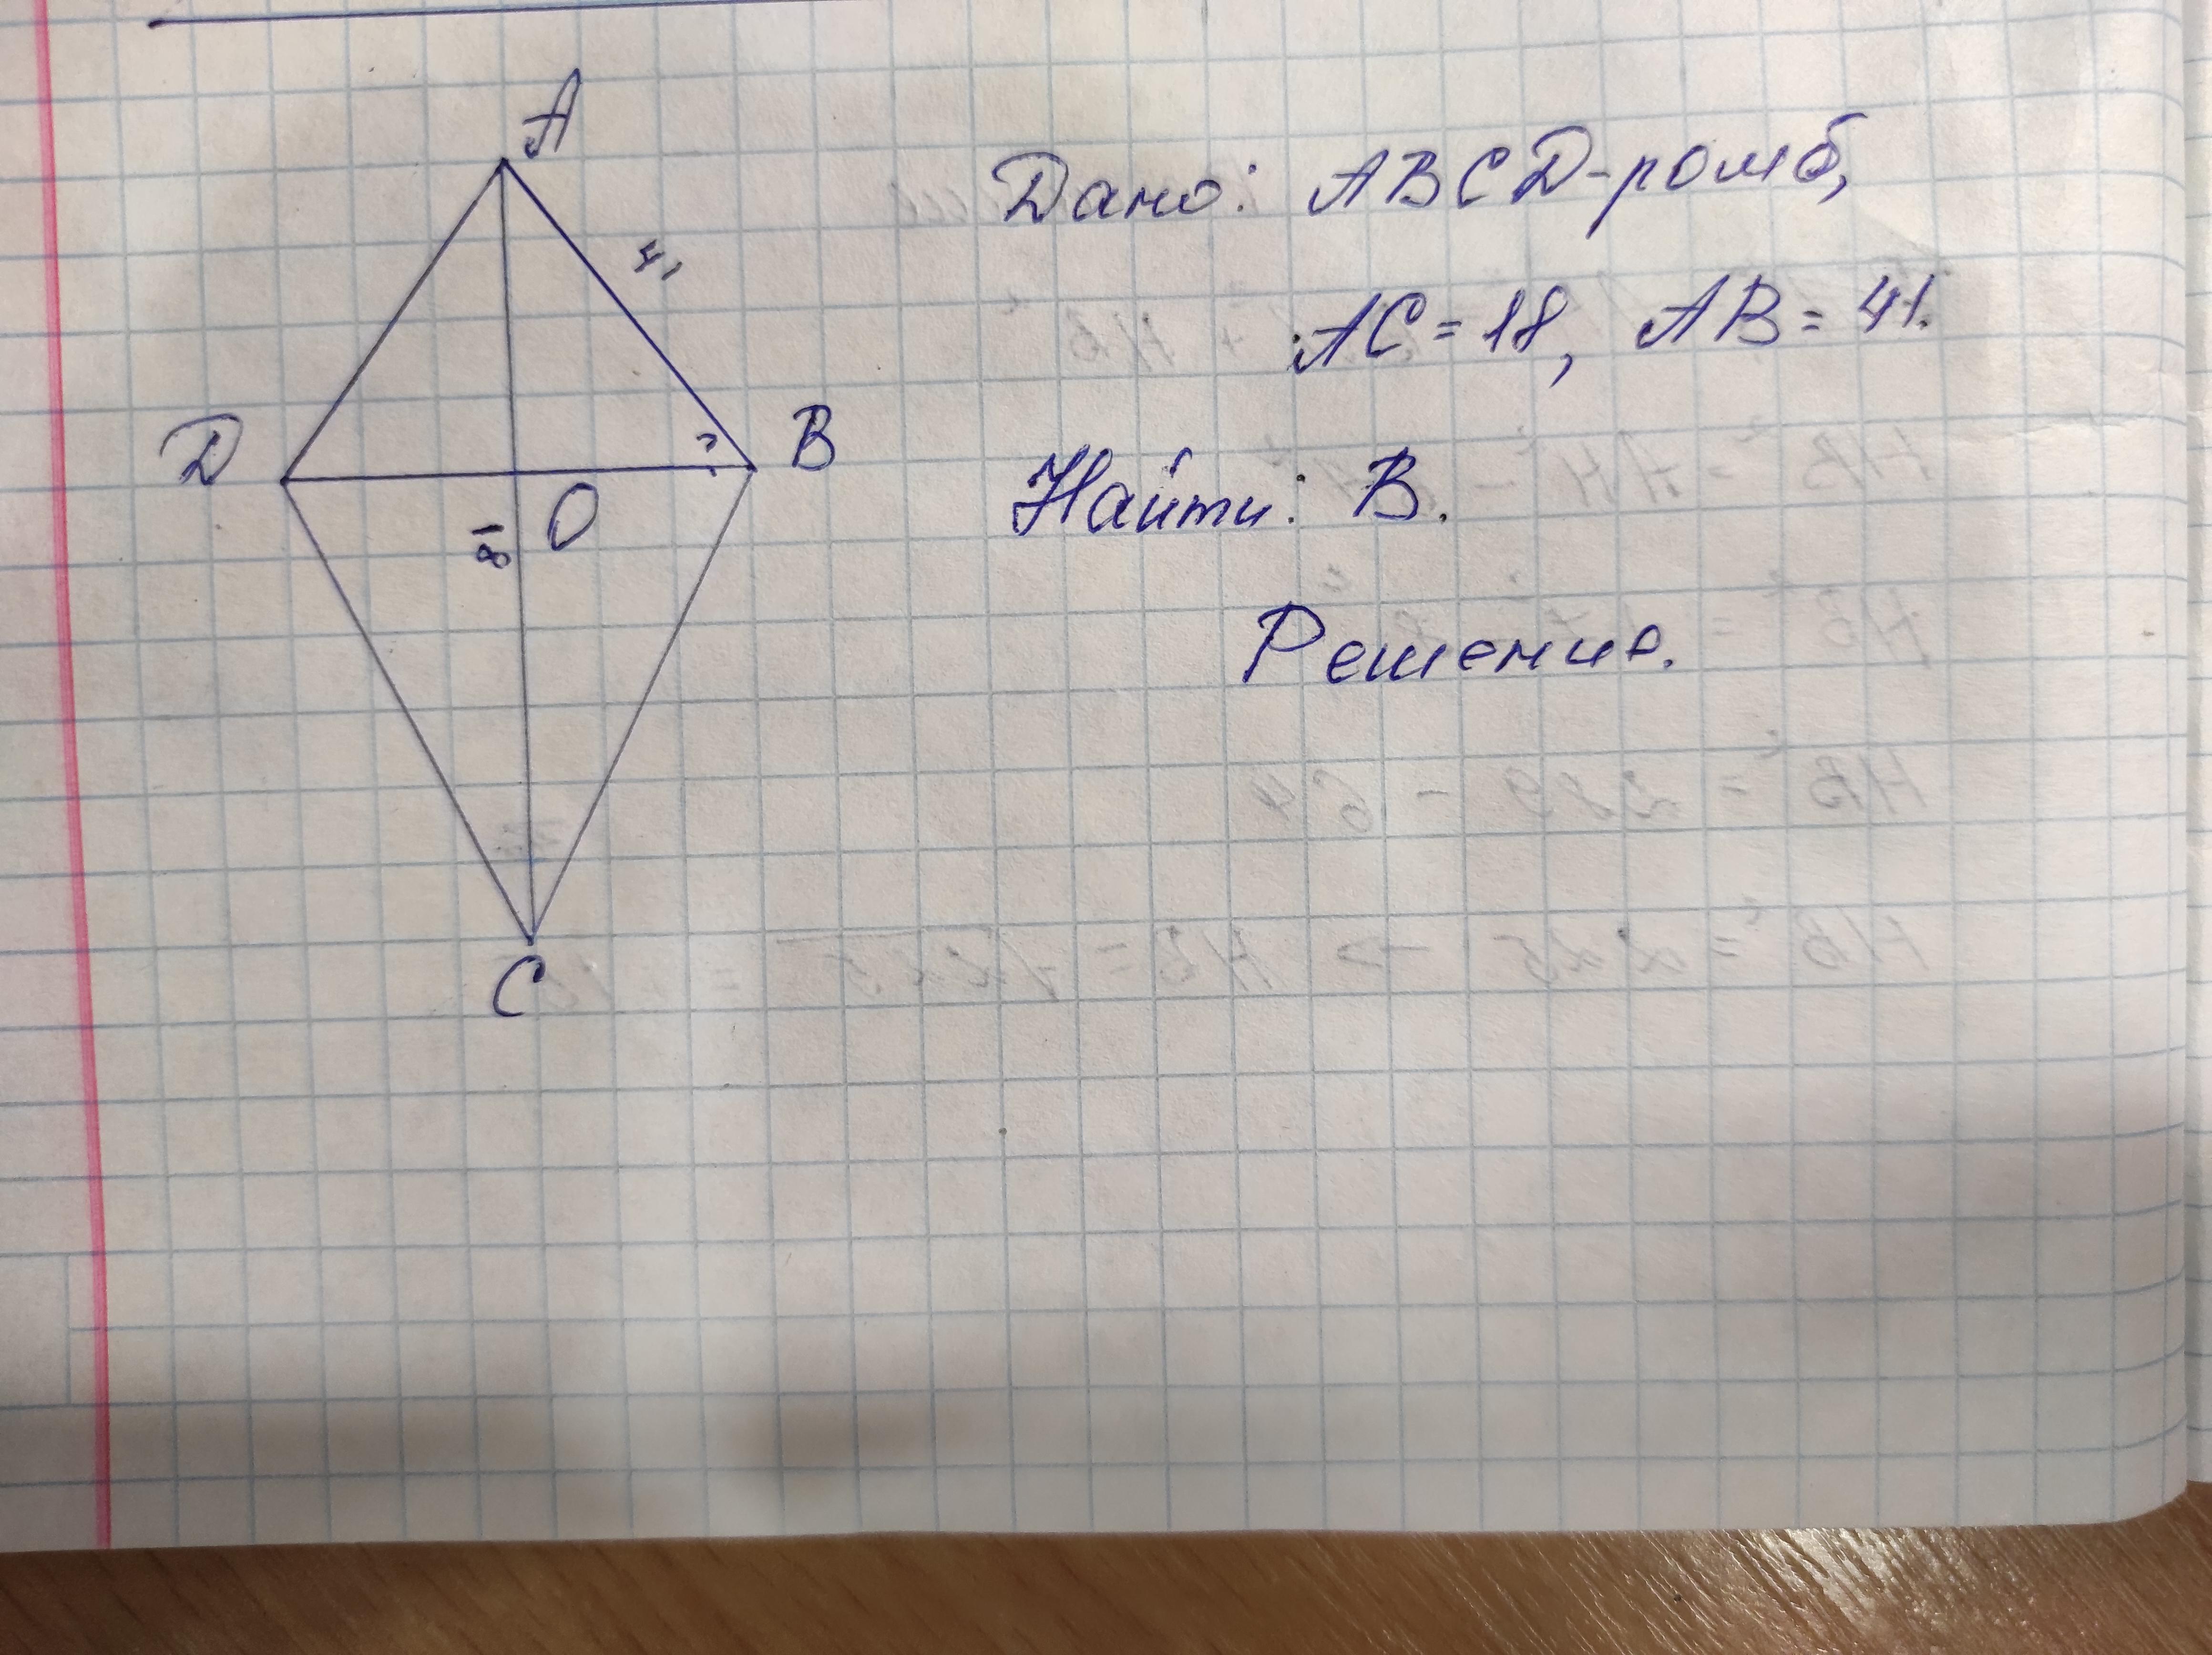 A
Дано: ABCD-ромб,
41
AC = 18, AB = 41.
D
?
B
Найти: B.
18
O
Решение.
C